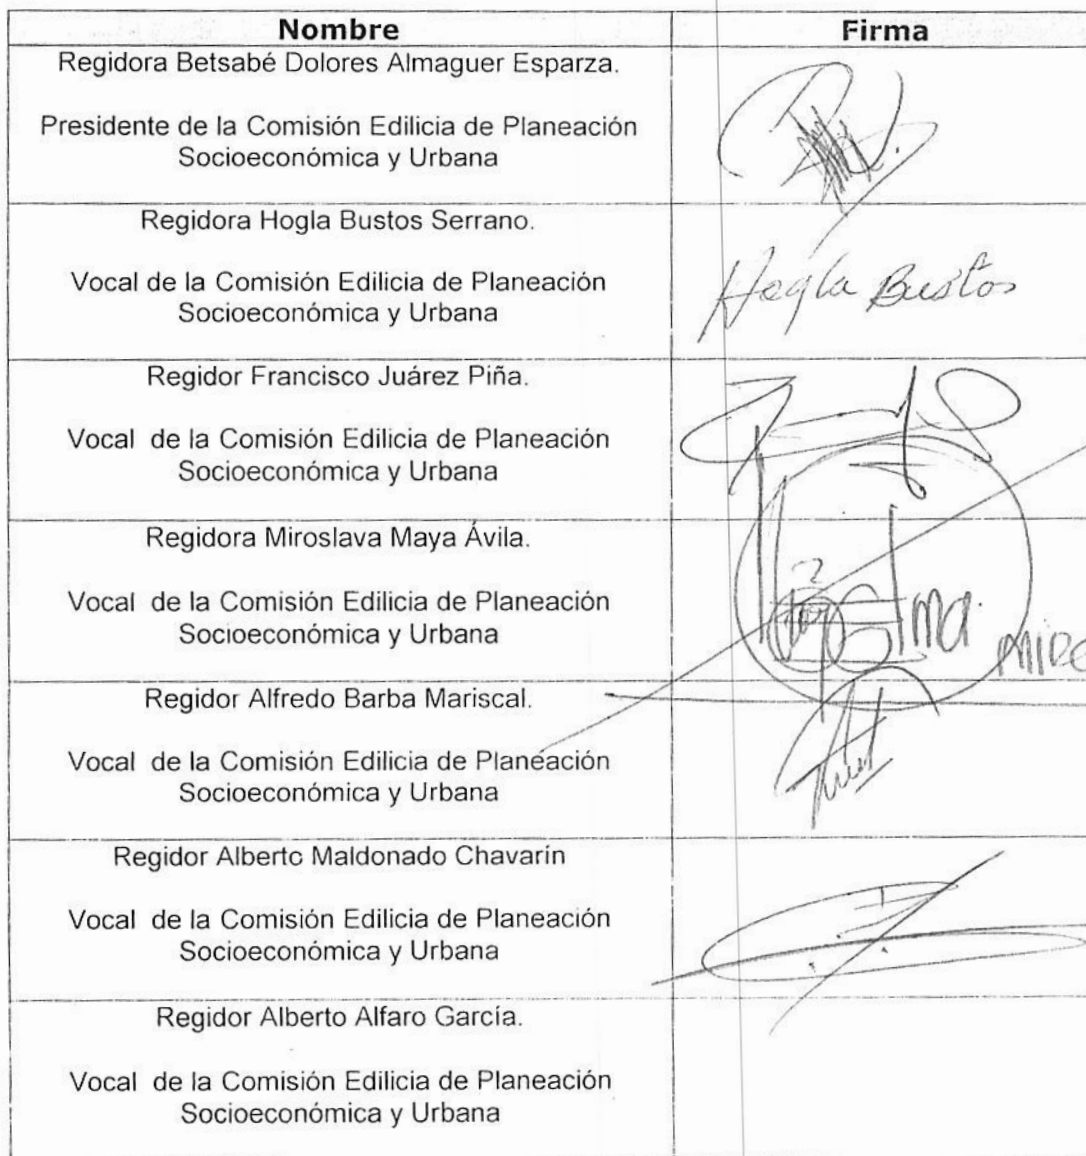 Nombre
Firma
Regidora Betsabé Dolores Almaguer Esparza.
Presidente de la Comisión Edilicia de Planeación
Socioeconómica y Urbana
Regidora Hogla Bustos Serrano.
Vocal de la Comisión Edilicia de Planeación
Socioeconómica y Urbana
Hogla Bustos
Regidor Francisco Juárez Piña.
Vocal de la Comisión Edilicia de Planeación
Socioeconómica y Urbana
Regidora Miroslava Maya Ávila.
Vocal de la Comisión Edilicia de Planeación
Socioeconómica y Urbana
Regidor Alfredo Barba Mariscal.
Vocal de la Comisión Edilicia de Planeación
Socioeconómica y Urbana
Regidor Alberto Maldonado Chavarín
Vocal de la Comisión Edilicia de Planeación
Socioeconómica y Urbana
Regidor Alberto Alfaro García.
Vocal de la Comisión Edilicia de Planeación
Socioeconómica y Urbana